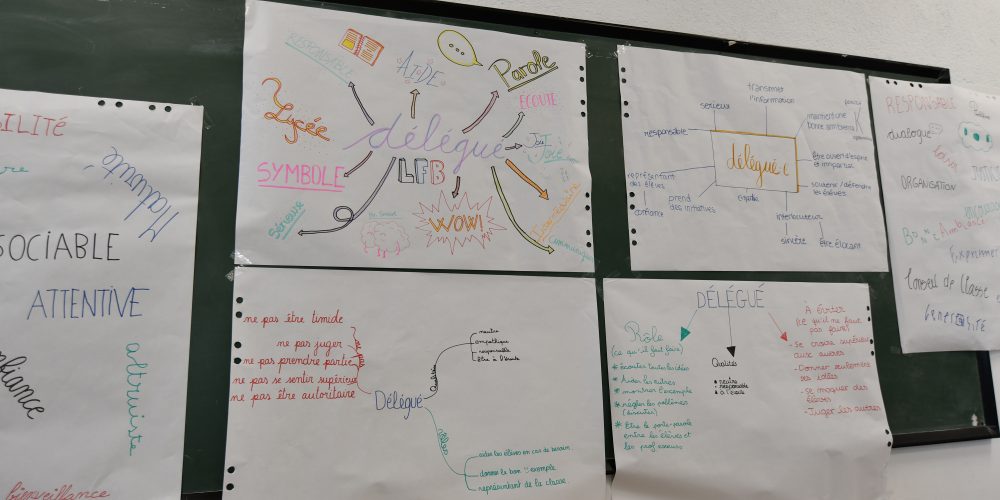 ILITÉ
Maturité
SOCIABLE
ATTENTIVE
altruiste
fiance
bienveillance
RESPONSABLE
AIDE
Parole
ÉCOUTE
Lycée
délégué
LFB
SYMBOLE
Sérieux
WOW!
Intermédiaire
Communiquer
transmet
l'information
sérieux
responsable
délégué.e
représentant
des élèves
confiance
prend
des initiatives
être ouvert d'esprit
et impartial
soutenir/défendre
les élèves
interlocuteur
sincère
être éloquent
RESPONSABLE
dialogue
ORGANISATION
Bonne Ambiance
Exprimer
Conseil de classe
Génér@sité
ne pas être timide
ne pas juger
ne pas prendre partie
ne pas se sentir supérieur
ne pas être autoritaire
ne pas
Délégué
Qualités
neutre
empathique
responsable
être à l'écoute
rôles
aider les élèves en cas de besoin
donner le bon exemple
représentant de la classe
DÉLÉGUÉ
Rôle
(ce qu'il faut faire)
* écouter toutes les idées
* Aider les autres
* montrer l'exemple
* régler les problèmes
(discuter)
* Être le porte-parole
entre les élèves et
les professeurs
Qualités
• neutre
• responsable
• à l'écoute
À éviter
(ce qu'il ne faut
pas faire)
- Se croire supérieur
aux autres
- Donner seulement
ses idées
- Se moquer des
élèves
- Juger les autres